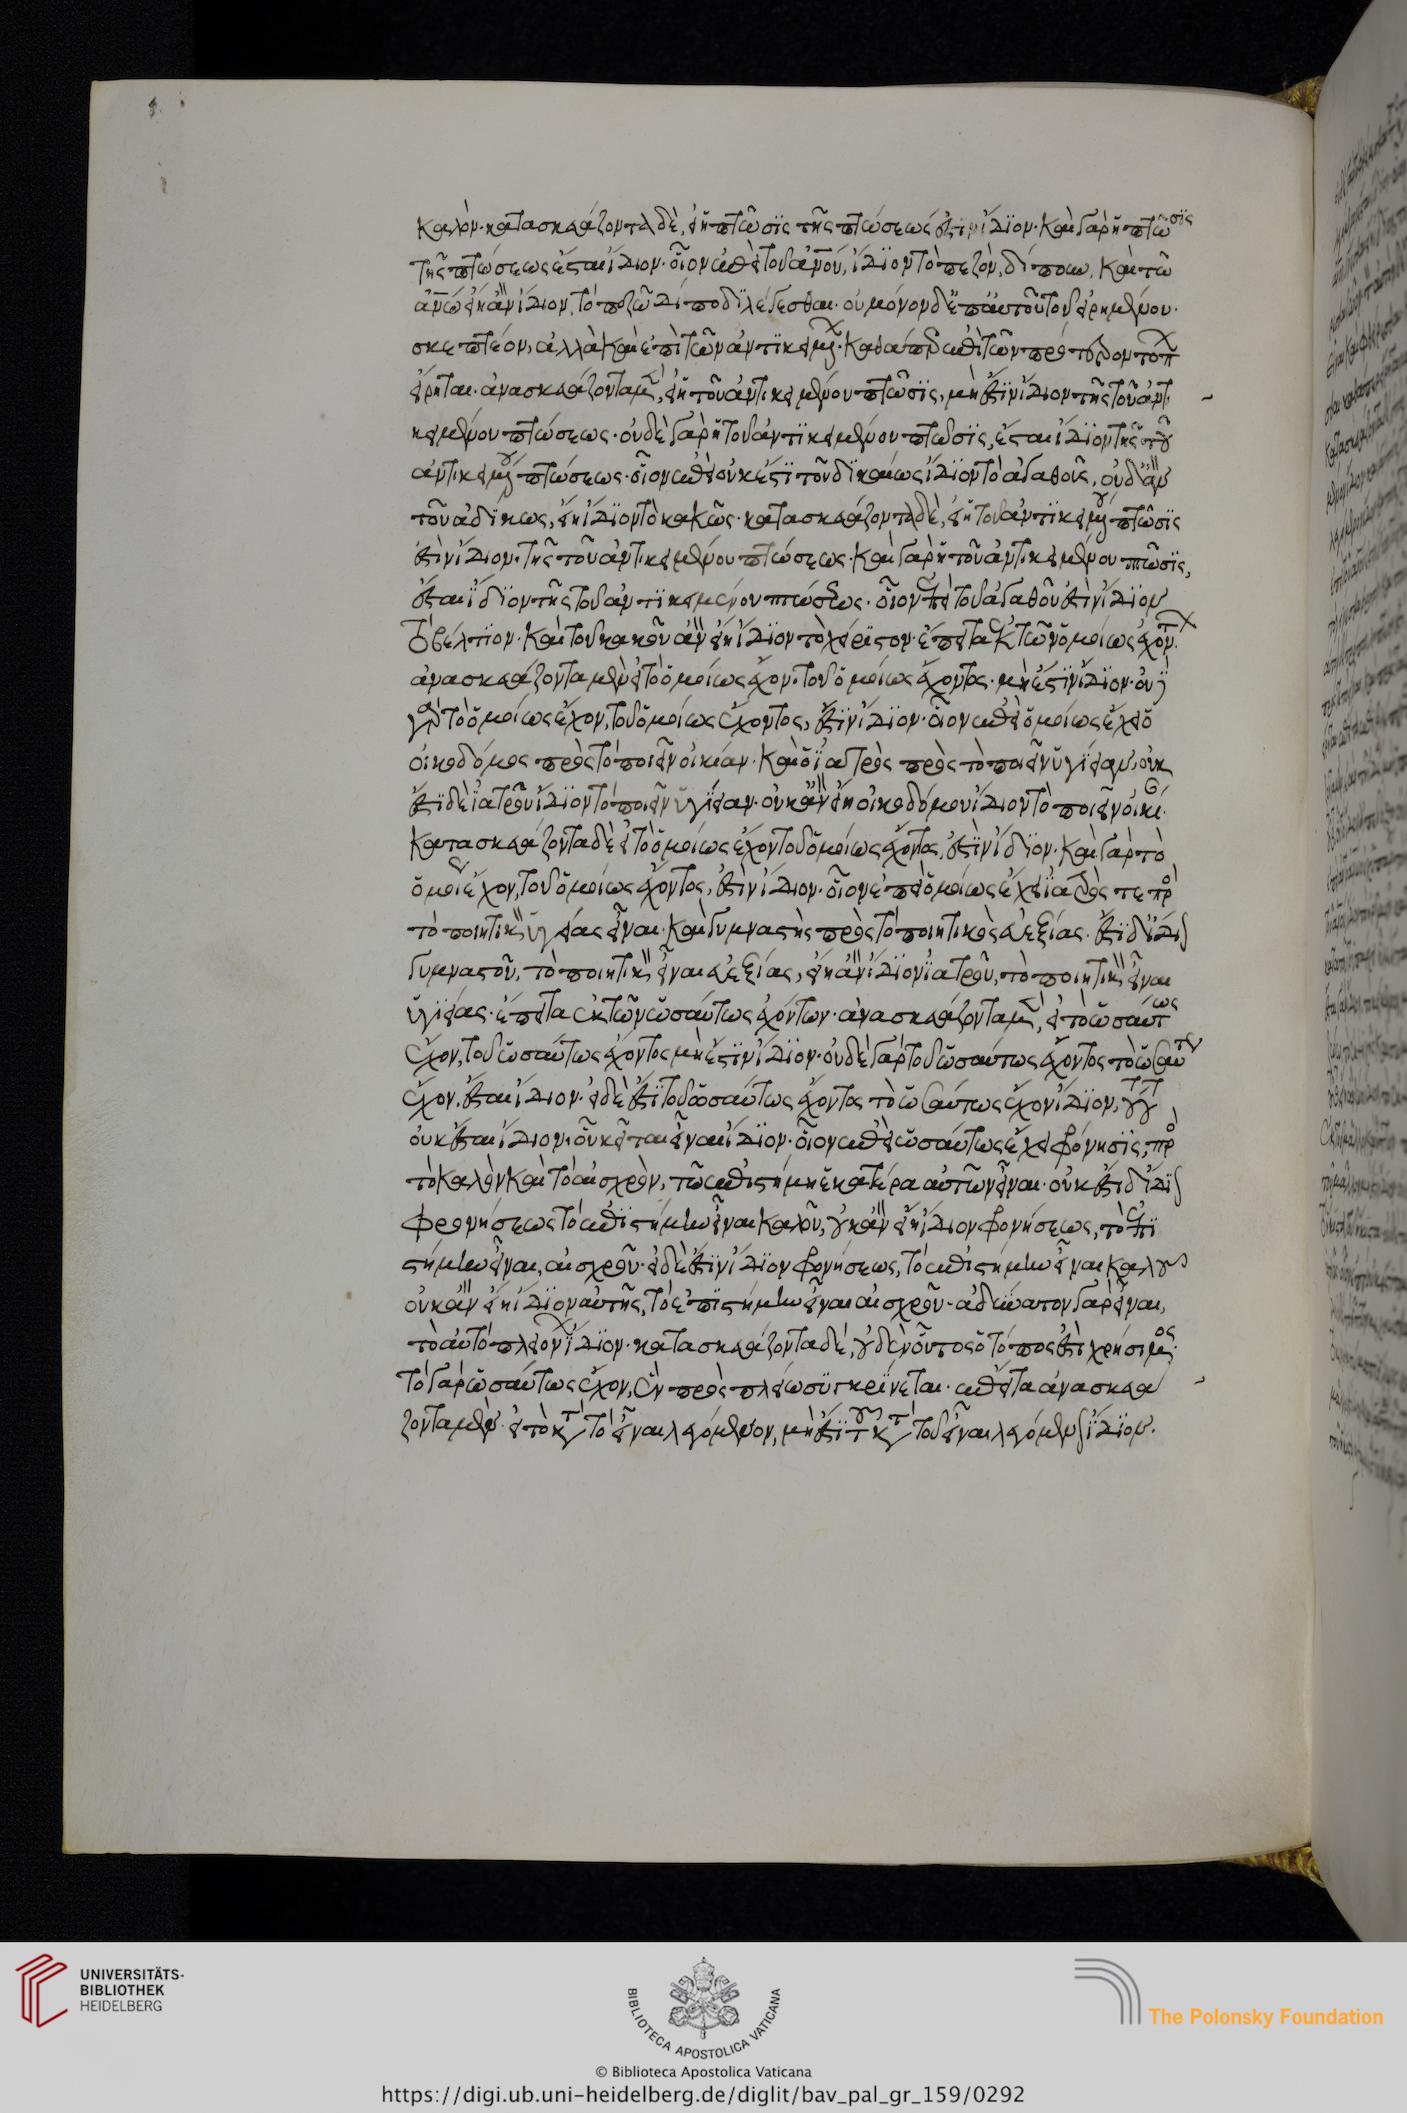 καλόν· κατασκευάζοντα δὲ, εἰ ἡ πτῶσϊς τῆς πτώσεώς ἐστιν ἴδϊον· καὶ γὰρ ἡ πτῶσϊς
τῆς πτώσεως ἔσται ἴδιον· οἷον ἐπεὶ τοῦ ἀνου, ἴδϊον τὸ πεζὸν, δίπουν, καὶ τῶ
ἀνω εἴη ἂν ἴδιον, τὸ πεζῶ δίποδϊ λέγεσθαι· οὐ μόνον δ' ἐπ' αὐτοῦ τοῦ εἰρημένου
σκεπτέον, ἀλλὰ καὶ ἐπὶ τῶν ἀντϊκειμένων· καθάπερ ἐπὶ τῶν πρότερον τόπων
εἴρηται· ἀνασκευάζοντα μὲν, εἰ ἡ τοῦ ἀντικειμένου πτῶσϊς, μὴ ἔστϊν ἴδιον τῆς τοῦ ἀντι
κειμένου πτώσεως· οὐδὲ γὰρ ἡ τοῦ ἀντϊκειμένου πτῶσϊς, ἔσται ἴδϊον τῆς τοῦ
ἀντικειμένου πτώσεως· οἷον ἐπεὶ οὐκ ἔστϊ τοῦ δϊκαίως ἴδϊον τὸ ἀγαθοῦς, οὐδ' ἂν
τοῦ ἀδίκως, εἴη ἴδϊον τὸ κακῶς· κατασκευάζοντα δὲ, εἰ ἡ τοῦ ἀντϊκειμένου πτῶσϊς
ἐστὶν ἴδιον· τῆς τοῦ ἀντικειμένου πτώσεως· καὶ γὰρ ἡ τοῦ ἀντικειμένου πτῶσϊς,
ἔσται ἴδϊον τῆς τοῦ ἀντϊκειμένου πτώσεως· οἷον ἐπεὶ τοῦ ἀγαθοῦ ἐστὶν ἴδϊον
τὸ βέλτϊον· καὶ τοῦ κακοῦ ἂν εἴη ἴδϊον τὸ χείρϊστον· ἔπειτα ἐκ τῶν ὁμοίως ἐχόντων·
ἀνασκευάζοντα μὲν εἰ τὸ ὁμοίως ἔχον· τοῦ ὁμοίως ἔχοντος· μὴ ἔστϊν ἴδϊον· οὐδὲ
γὰρ τὸ ὁμοίως ἔχον, τοῦ ὁμοίως ἔχοντος, ἔστϊν ἴδϊον· οἷον ἐπεὶ ὁμοίως ἔχει ὁ
οἰκοδόμος πρὸς τὸ ποιεῖν οἰκίαν· καὶ ὁ ϊατρὸς πρὸς τὸ ποιεῖν ὑγίειαν, οὐκ
ἔστϊ δὲ ϊατροῦ ἴδϊον τὸ ποιεῖν ὑγίειαν· οὐκ ἂν εἴη οἰκοδόμου ἴδϊον τὸ ποιεῖν οἰκίαν·
κατασκευάζοντα δὲ εἰ τὸ ὁμοίως ἔχον τοῦ ὁμοίως ἔχοντος, ἐστϊν ἴδϊον· καὶ γὰρ τὸ
ὁμοίως ἔχον, τοῦ ὁμοίως ἔχοντος, ἐστὶν ἴδιον· οἷον ἐπεὶ ὁμοίως ἔχει ϊατρὸς τε πρὸς
τὸ ποιητικὸν ὑγείας εἶναι· καὶ γυμναστὴς πρὸς τὸ ποιητικὸς εὐεξίας· ἔστϊ δ' ἴδιον
γυμναστοῦ, τὸ ποιητικὸν εἶναι εὐεξίας, εἴη ἂν ἴδϊον ϊατροῦ, τὸ ποιητικὸν εἶναι
ὑγϊείας· ἔπειτα ἐκ τῶν ὡσαύτως ἐχόντων· ἀνασκευάζοντα μὲν, εἰ τὸ ὡσαύτως
ἔχον, τοῦ ὡσαύτως ἔχοντος μὴ ἔστϊν ἴδϊον· οὐδὲ γὰρ τοῦ ὡσαύτως ἔχοντος τὸ ὡσαύτως
ἔχον, ἔσται ἴδιον· εἰ δὲ ἔστϊ τοῦ ὡσαύτως ἔχοντος τὸ ὡσαύτως ἔχον ἴδϊον, τούτου
οὐκ ἔσται ἴδιον, οὗ κεῖται εἶναι ἴδϊον· οἷον ἐπεὶ ὡσαύτως ἔχει φρόνησϊς, πρὸς
τὸ καλὸν καὶ τὸ αἰσχρὸν, τῶ ἐπιστήμη ἑκατέρα αὐτῶν εἶναι· οὐκ ἔστι δ' ἴδϊον
φρονήσεως τὸ ἐπϊστήμην εἶναι καλοῦ, οὐκ ἂν εἴη ἴδιον φρονήσεως, τὸ ἐπϊ
στήμην εἶναι, αἰσχροῦ· εἰ δὲ ἔστϊν ἴδϊον φρονήσεως, τὸ ἐπιστήμην εἶναι καλοῦ
οὐκ ἂν εἴη ἴδϊον αὐτῆς, τὸ ἐπϊστήμην εἶναι αἰσχροῦ· ἀδύνατον γὰρ εἶναι,
τὸ αὐτὸ πλειόνων ἴδϊον· κατασκευάζοντα δὲ, οὐδὲν οὗτος ὁ τόπος ἐστὶ χρήσιμος·
τὸ γὰρ ὡσαύτως ἔχον, ἓν πρὸς πλείω συγκρϊνεται· ἔπειτα ἀνασκευά
ζοντα μὲν· εἰ τὸ κατὰ τὸ εἶναι λεγόμενον, μὴ ἔστϊ τοῦ κατὰ τοῦ εἶναι λεγομένου ἴδϊον.
UNIVERSITÄTS-
BIBLIOTHEK
HEIDELBERG
BIBLIOTECA APOSTOLICA VATICANA
The Polonsky Foundation
© Biblioteca Apostolica Vaticana
https://digi.ub.uni-heidelberg.de/diglit/bav_pal_gr_159/0292